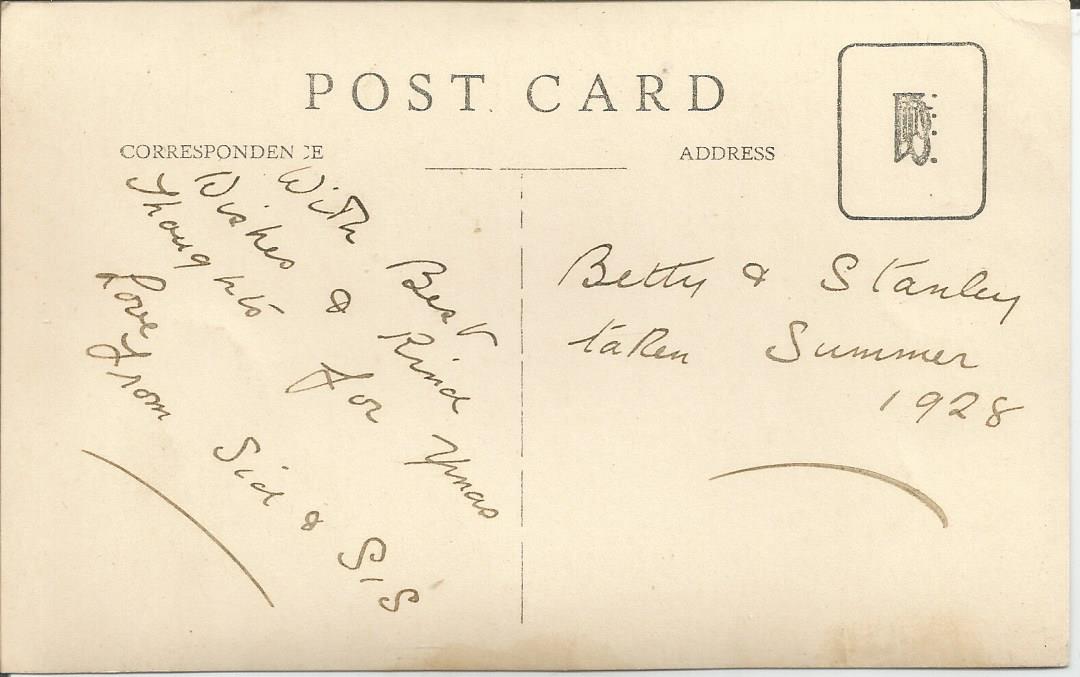 POST CARD
CORRESPONDENCE
ADDRESS
With Best
Wishes & Kind
Thoughts for Xmas
Love from Sid & Sis
Betty & Stanley
taken Summer
1928